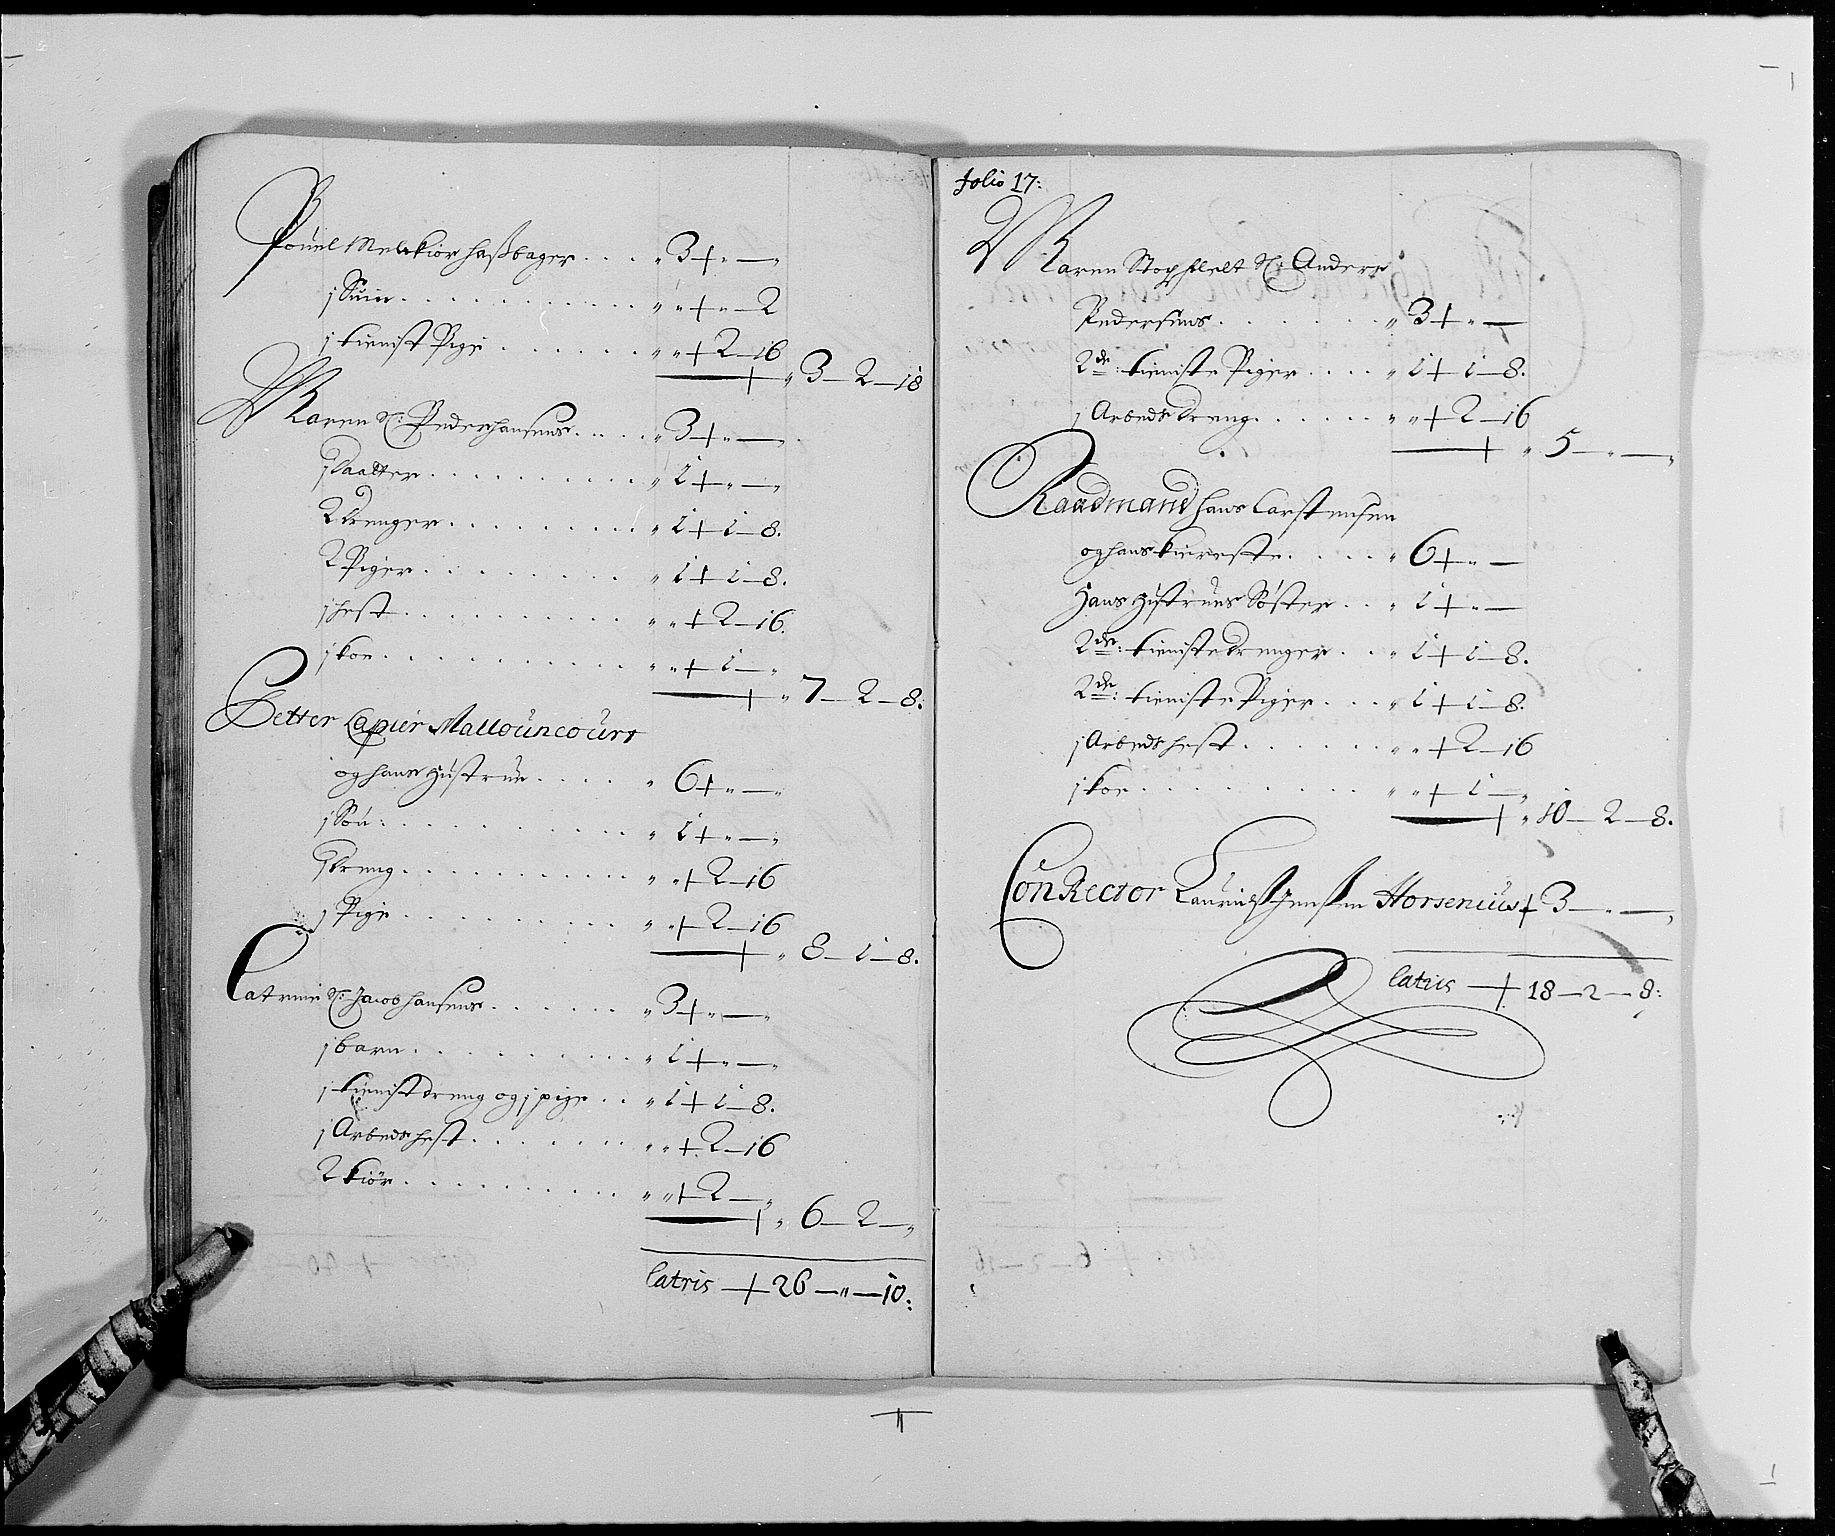 Pouel Melckior Hassbager . . . . „ 3 + „ — „
j Suin . . . . . . . . . . „ „ + „ — 2
j tienist Pige . . . . . . „ „ + 2 — 16
+ „ 3 — 2 — 18
Karen Sl: Peder Hansens . . . . „ 3 + „ — „
j daatter . . . . . . . . . „ 1 + „ — „
2 drenger . . . . . . . . „ 1 + 1 — 8.
2 Piger . . . . . . . . . „ 1 + 1 — 8.
j hest . . . . . . . . . . „ „ + 2 — 16.
j koe . . . . . . . . . . „ „ + 1 — „
+ „ 7 — 2 — 8:
Petter Capier Mallouncourt
og hans hustrue . . . . „ 6 + „ — „
j Søn . . . . . . . . . . „ 1 + „ — „
j dreng . . . . . . . . . „ „ + 2 — 16
j Pige . . . . . . . . . . „ „ + 2 — 16
+ „ 8 — 1 — 8.
Catrine Sl: Jacob Hansens . . . . . . „ 3 + „ — „
j barn . . . . . . . . . „ 1 + „ — „
j tienist dreng og j pige . . „ 1 + 1 — 8.
j Arbeds hest . . . . . . „ „ + 2 — 16
2 kiör . . . . . . . . . „ „ + 2 — „
+ „ 6 — 2 — „
Latris — + 26 — „ — 10:
Folio 17:
Karen Sl: Anders
Pedersens . . . . . . „ 3 + „ —
2de: tieniste Piger . . . . „ 1 + 1 — 8.
j Arbeds dreng . . . . . . „ „ + 2 — 16
+ „ 5 — „ — „
Raadmand Hans Carstensen
og hans kiereste . . . . . „ 6 + „ —
Hans hustrues Söster . . . „ 1 + „ —
2de: tieniste drenger . . . „ 1 + 1 — 8.
2de: tieniste Piger . . . . „ 1 + 1 — 8.
j Arbeds hest . . . . . . „ „ + 2 — 16
j koe . . . . . . . . . „ „ + 1 — „
+ „ 10 — 2 — 8.
ConRector Laurids Jensen Horsenius + 3 — „ — „
Latus — + 18 — 2 — 8: